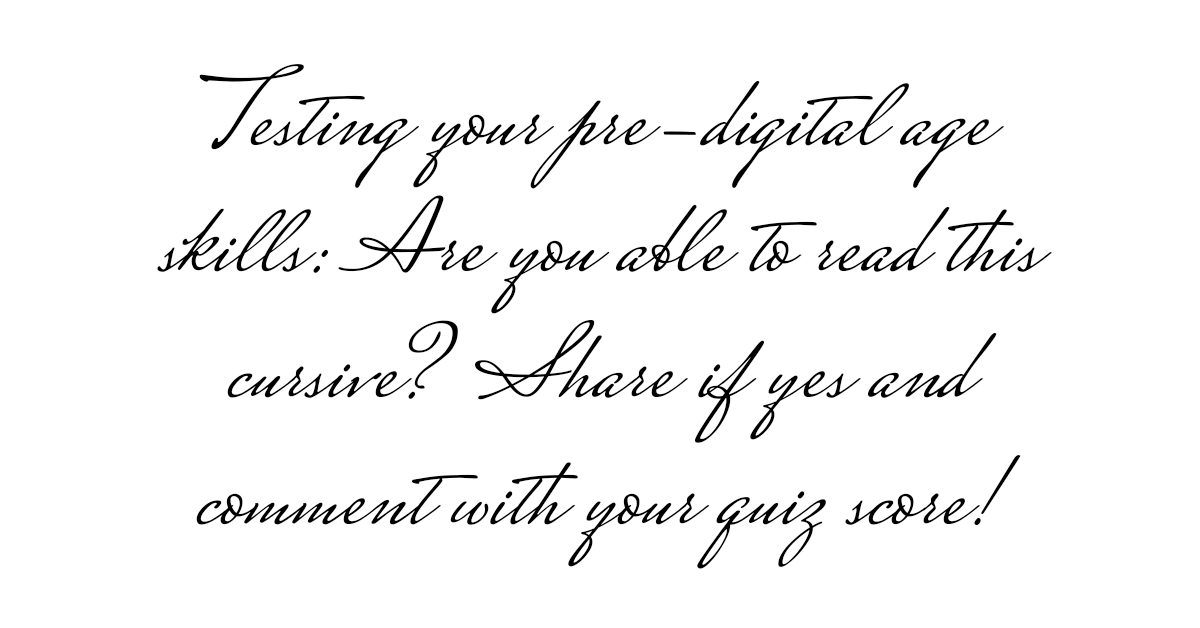 Testing your pre-digital age
skills: Are you able to read this
cursive? Share if yes and
comment with your quiz score!